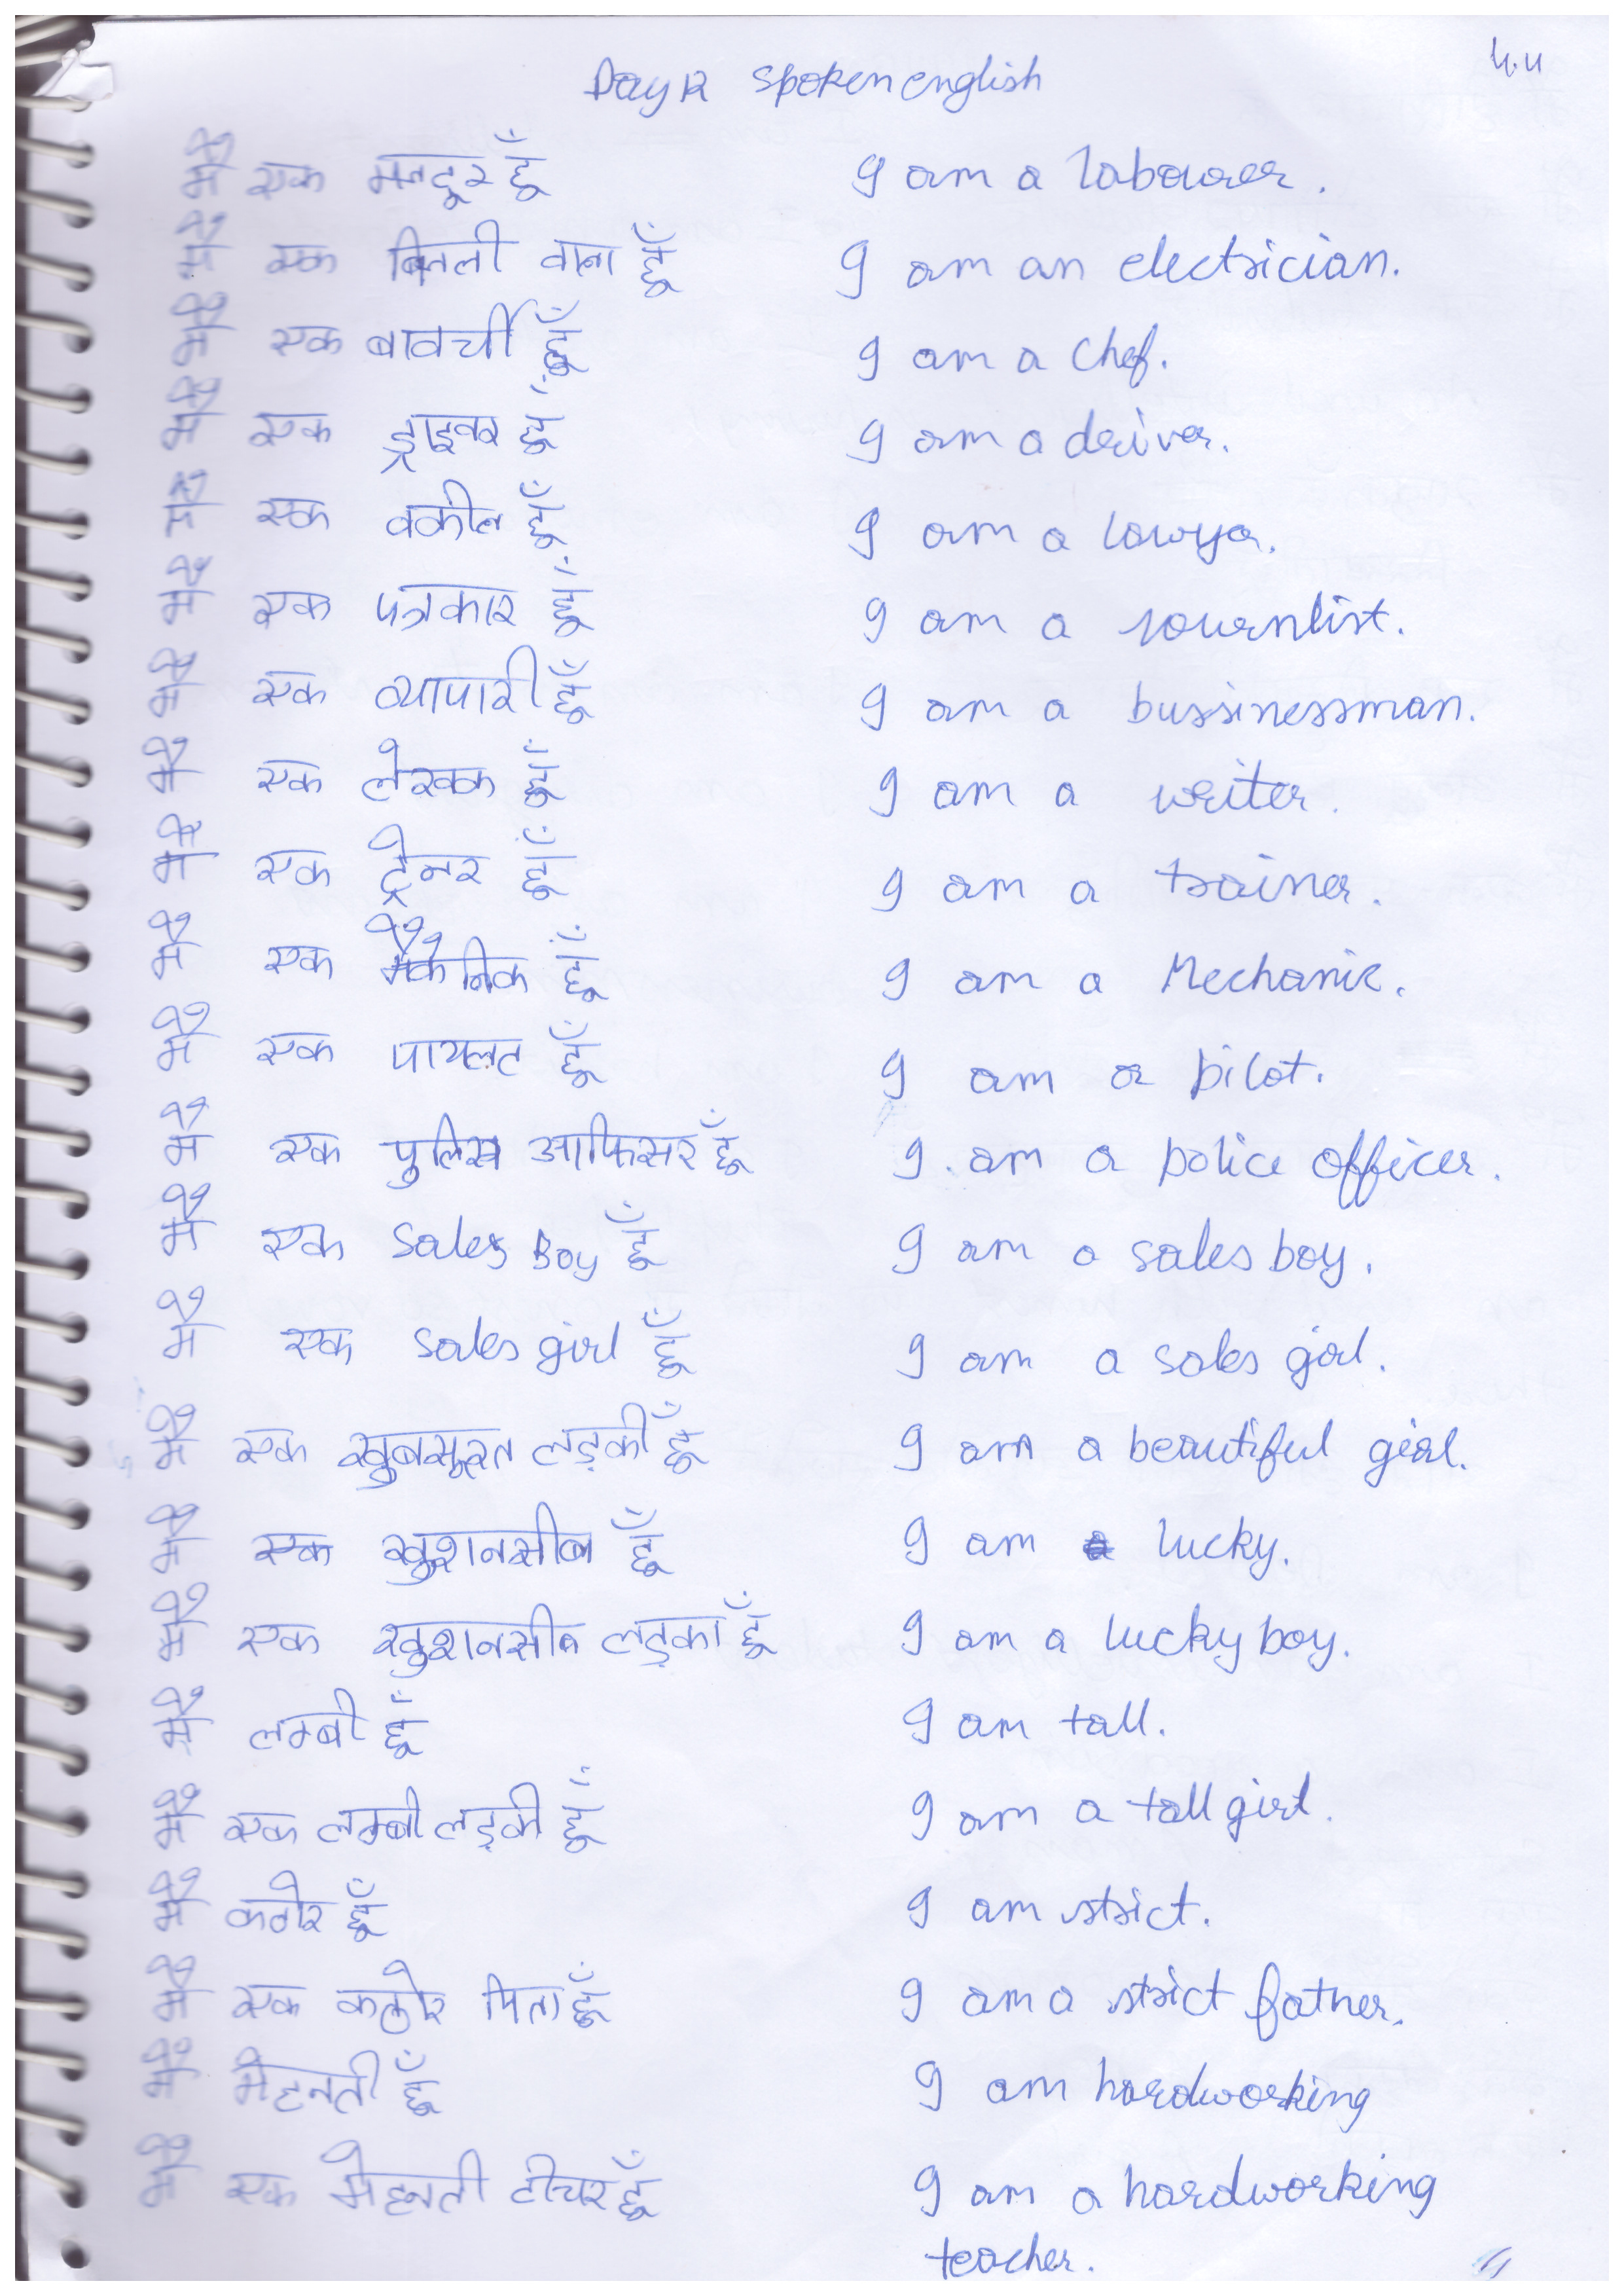 Day 12 spoken english
मैं एक मजदूर हूँ I am a labourer.
मैं एक बिजली वाला हूँ I am an electrician.
मैं एक बावर्ची हूँ I am a chef.
मैं एक ड्राइवर हूँ I am a driver.
मैं एक वकील हूँ I am a lawyer.
मैं एक पत्रकार हूँ I am a journlist.
मैं एक व्यापारी हूँ I am a bussinessman.
मैं एक लेखक हूँ I am a writer.
मैं एक ट्रेनर हूँ I am a trainer.
मैं एक मैकैनिक हूँ I am a Mechanic.
मैं एक पायलट हूँ I am a pilot.
मैं एक पुलिस आफिसर हूँ I am a police officer.
मैं एक Sales Boy हूँ I am a sales boy.
मैं एक Sales girl हूँ I am a sales girl.
मैं एक खुबसूरत लड़की हूँ I am a beautiful girl.
मैं एक खुशनसीब हूँ I am lucky.
मैं एक खुशनसीब लड़का हूँ I am a lucky boy.
मैं लम्बी हूँ I am tall.
मैं एक लम्बी लड़की हूँ I am a tall girl.
मैं कठोर हूँ I am strict.
मैं एक कठोर पिता हूँ I am a strict father.
मैं मेहनती हूँ I am hardworking
मैं एक मेहनती टीचर हूँ I am a hardworking
teacher.